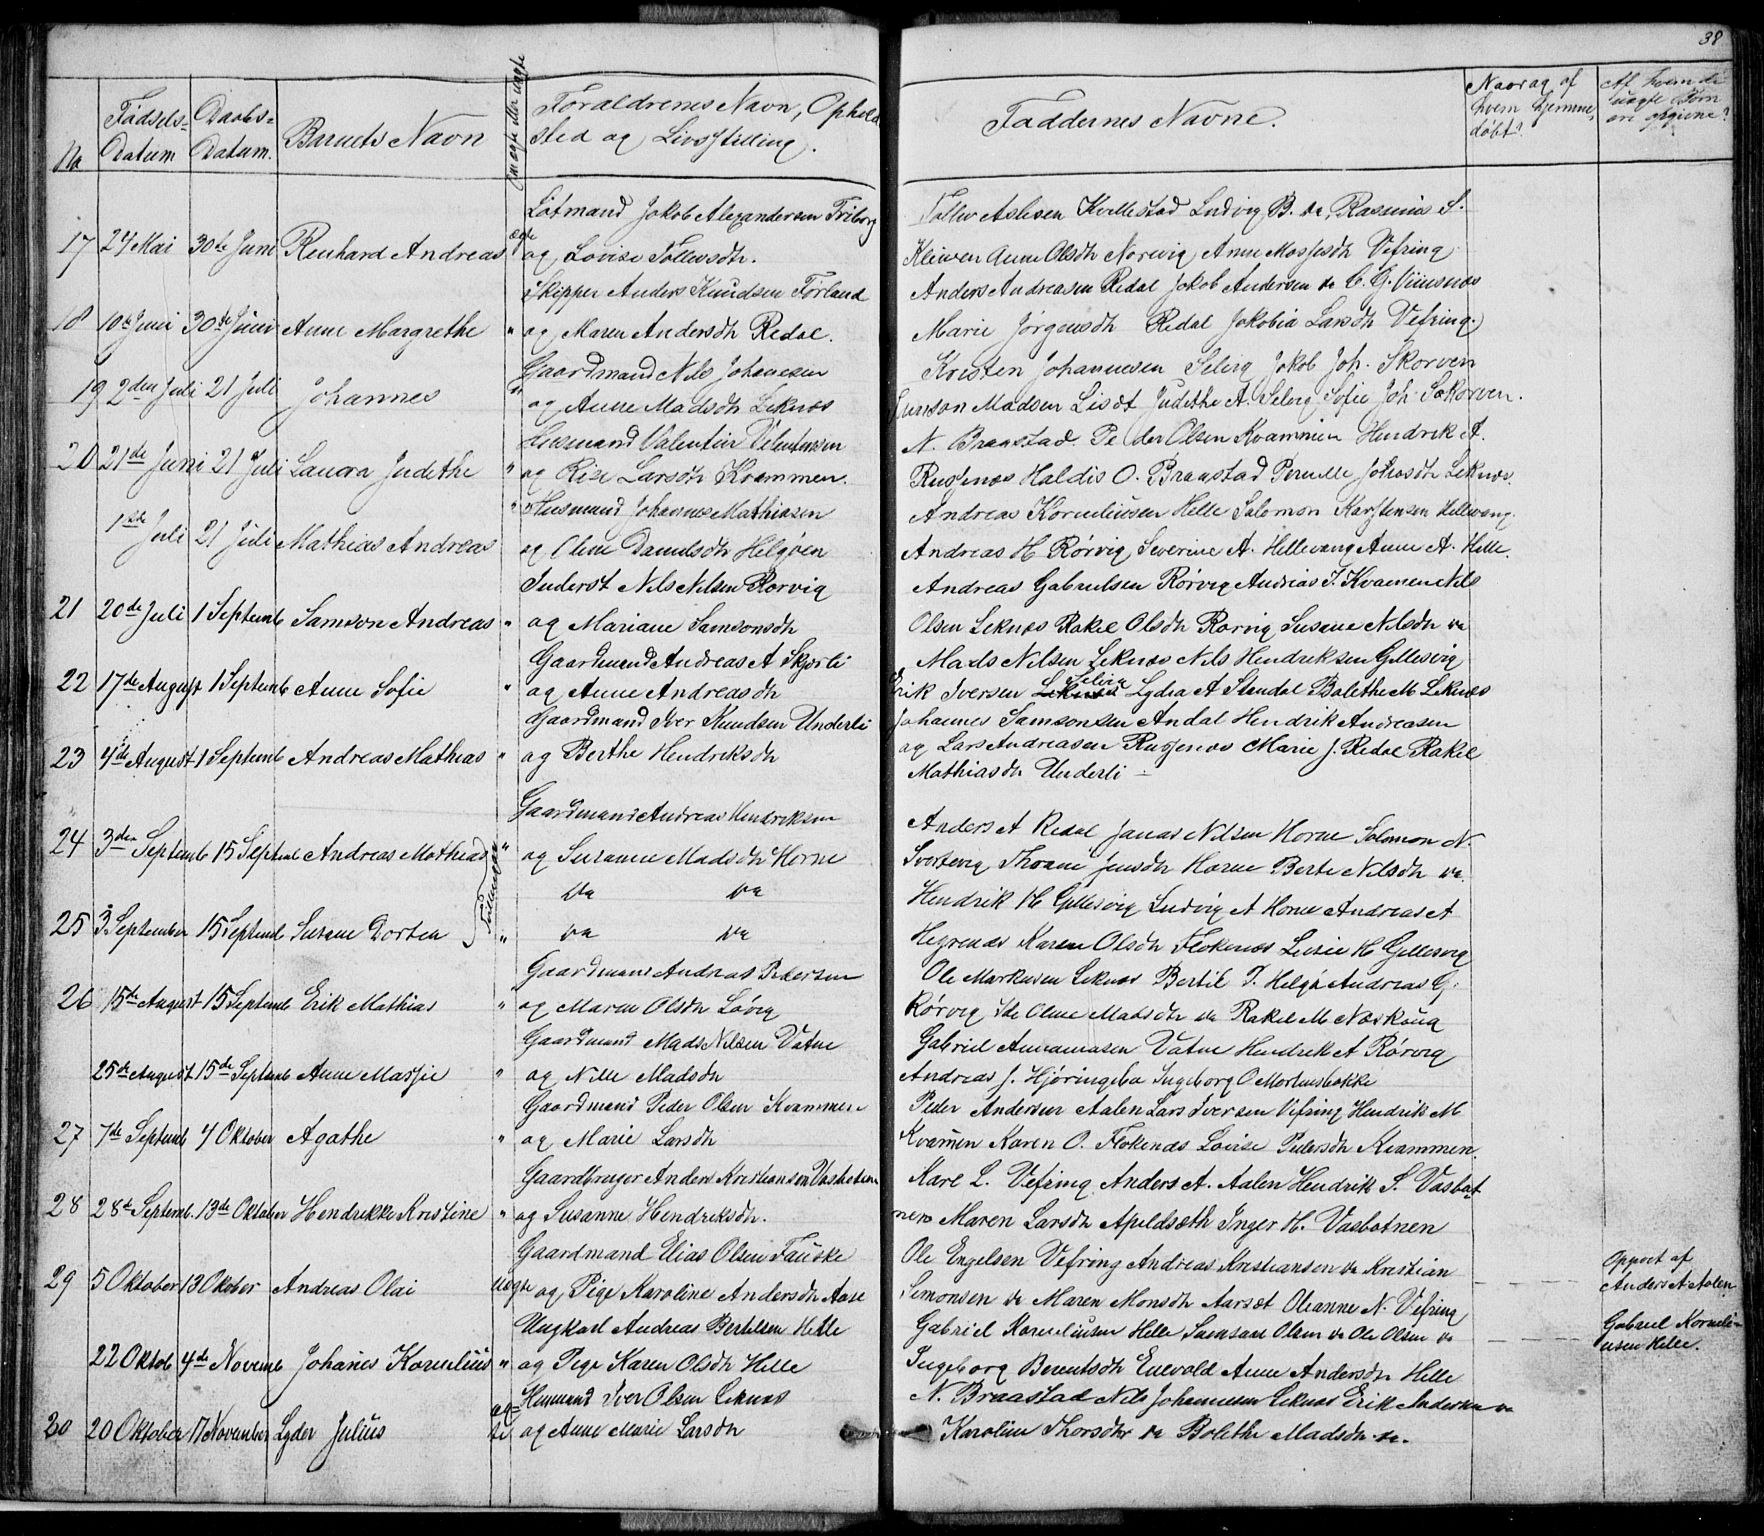 38
No
Fødsels-
Datum
Daabs-
Datum.
Barnets Navn
Forældrenes Navn, Ophold
sted og Livsstilling.
Faddernes Navne.
Naar og af
hvem hjemme-
døbt?
Af hvem de
uægte Børn
ere opgivne?
Lotmand Jokob Alexandersen Friborg
17 24 Mai 30te Juni Renhard Andreas ægte og Lovise Tollevsdtr.
Tollev Aslesen Kvellestad Ludvig B. do, Rasmus S.
Kleiven Anne Olsdtr Norvig Anne Mossesdtr Vefring
Skipper Anders Knudsen Førland
18 10de Juni 30te Juni Anne Margrethe " og Maren Andersdtr Redal.
Anders Andreasen Redal Jokob Andersen do C. G. Viinsnæs
Marie Jørgensdtr Redal Jokobia Larsdtr Vefring.
Gaardmand Nils Johanesen
19 2den Juli 21 Juli Johannes " og Anne Madsdtr Leknæs
Kristen Johannesen Selvig Jokob Joh. Skorven
Madsen Judethe A. Selvig Sofie Joh. Skorven.
Husmand Valentin Velentinsen
20 21de Juni 21 Juli Laura Judethe " og Larsdtr Kvammen.
N. Braastad. Peder Olsen Kvammen Hendrik A.
Russenæs Haldis O. Braastad Pernille Leknæs.
" Husmand Johannes Mathiasen
1ste Juli 21 Juli Mathias Andreas og Oline Danielsdtr Helgøen
Andreas Korneliusen Helle Salomon Karstensen Hellevang.
Andreas H Rørvig, Severine A. Hellevang Anne A. Helle.
Inderst Nils Nilsen Rørvig
21 20de Juli 1 Septemb Samson Andreas " og Mariane Samsonsdtr
Andreas Gabrielsen Rørvig Andrias I. Kvamen Nils
Olsen Leknæs Rakel Olsdtr Rørvig Susane Nilsdtr do
Gaardmand Andreas A Skjerli
22 17de August 1 Septemb Anne Sofie " og Anne Andreasdtr
Mads Nilsen Leknæs Nils Hendriksen Gyllesvig
Erik Iversen Leknæs Selvig Lydia A Standal Bolethe M Leknæs
Gaardmand Iver Knudsen Underli
23 4de August 1 Septemb Andreas Mathias " og Berthe Hendriksdtr
Johannes Samsonsen Andal Hendrik Andreasen
og Lars Andreasen Russenæs Marie J. Redal Rakel
Mathiasdtr Underli –
Gaardmand Andreas Hendriksen
24 3den Septemb 15 Septemb Andreas Mathias " og Susanne Madsdtr Horne
Tvillinger
Anders A Redal Janas Nilsen Horne Solomon N.
Svortevig Jensdtr Horne Berte Nilsdtr do.
do do
25 3 September 15 Septemb Susane Dortea " do do
Hendrik H Gyllesvig Ludvig A Horne Andreas A
Hegrenæs Karen Olsdtr Flokenæs Lusie H Gyllesvig
Gaardmand Andreas Petersen
26 15de August 15 Septemb Erik Mathias " og Maren Olsdtr Løvig
Ole Markusen Leknæs Bertil I. Helgø Andreas G.
Rørvig Oline Madsdtr do Rakel M
Gaardmand Mads Nilsen Vatne
25de August 15de Septemb Anne Massie " og Nille Madsdtr
Gabriel Annaniasen Vatne Hendrik A Rørvig
Andreas J. Hjøringebø Ingeborg O Mortensbakke
Gaardmand Peder Olsen Kvammen
27 7de Septemb 4 Oktober Agathe " og Marie Larsdtr
Peder Andersen Aalen Lars Iversen Vefring Hendrik M
Kvamen Karen O. Flokenæs Lovise Pedersdtr Kvammen.
Gaardbruger Anders Kristiansen Vasbotnen
28 28de Septemb. 13de Oktober Hendrikke Kristine " og Susanne Hendriksdtr.
Kare L. Vefring Anders A. Aalen Hendrik S. Vasbot
nen Maren Larsdtr Apeldsæth Inger H. Vasbotnen
Gaardmand Elias Olsen Fauske
29 5 Oktober 13 Oktober Andreas Olai Uægte og Pige Karoline Andersdtr Aase
Ole Engelsen Vefring Andreas Kristiansen do Kristian
Simonsen do Maren Monsdtr Aarsæt Oleanne N. Vefring
Oppvet af
Anders A Aalen
Ungkarl Andreas Bertelsen Helle
22 Oktob 4de Novemb Johanes Kornelius " og Pige Karen Olsdtr Helle
Gabriel Korneliusen Helle Samsone Olsen do Ole Olsen do
Ingeborg Berentsdtr Enevold Anne Andersdtr Helle
Gabriel Korneli-
usen Helle.
Husmand Iver Olsen Leknæs
30 20 Oktober 17 November Lyder Julius og Anne Marie Larsdtr
N. Braastad Nils Johannesen Leknæs Erik Andersen do
Karoline Thorsdtr do Bolethe Madsdtr do.